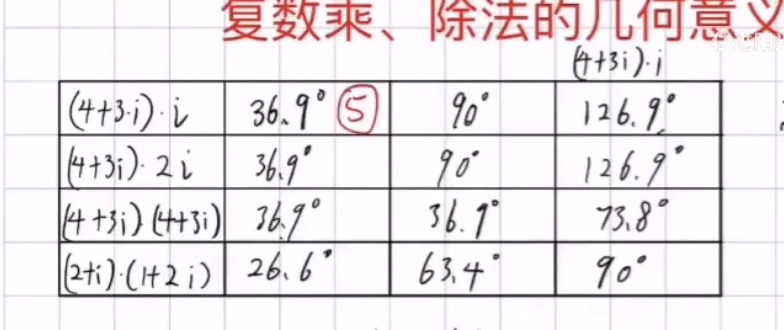 复数乘、除法的几何意义
(4+3i)·i
(4+3·i)·i 36.9° ⑤ 90° 126.9°
(4+3i)·2i 36.9° 90° 126.9°
(4+3i)(4+3i) 36.9° 36.9° 73.8°
(2+i)·(1+2i) 26.6° 63.4° 90°